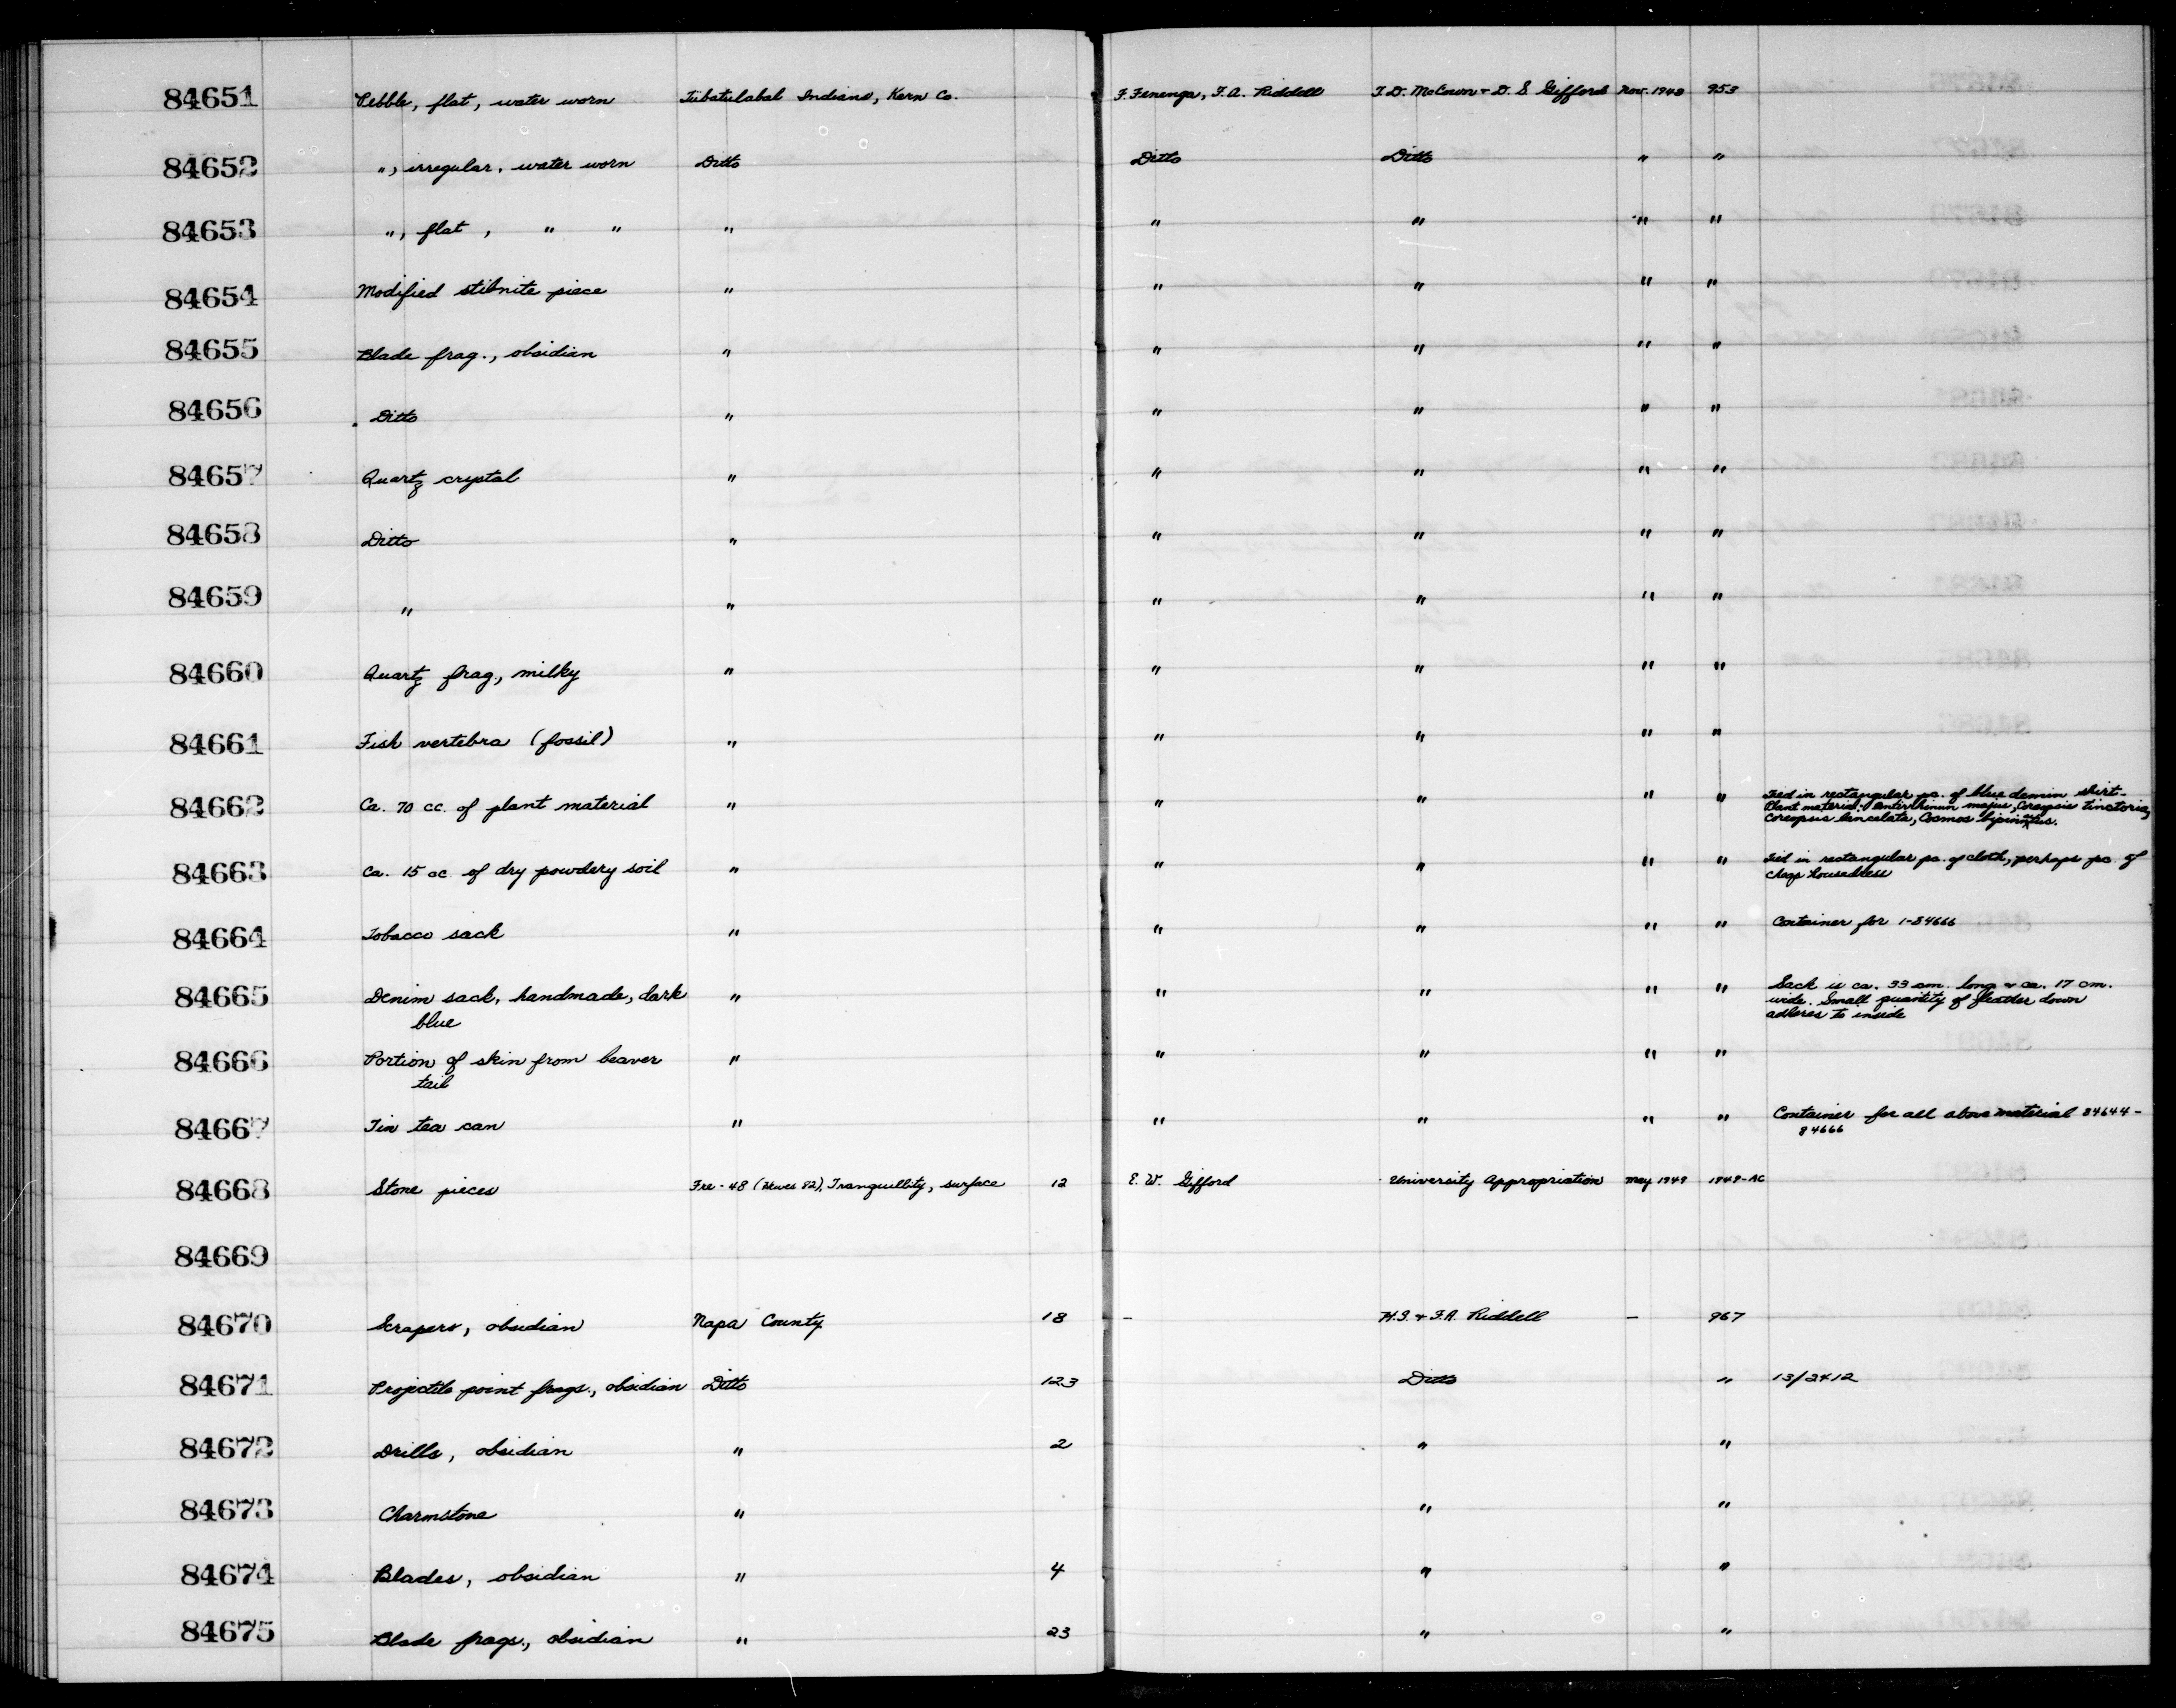 84651 Pebble, flat, water worn Tübatulabal Indians, Kern Co. F. Fenenga, F.A. Riddell T.D. McCown + D.S. Gifford Nov. 1948 953
84652 ", irregular, water worn Ditto Ditto Ditto " "
84653 ", flat, " " " " " " "
84654 Modified stibnite piece " " " " "
84655 Blade frag., obsidian " " " " "
84656 Ditto " " " " "
84657 Quartz crystal " " " " "
84658 Ditto " " " " "
84659 " " " " " "
84660 Quartz frag., milky " " " " "
84661 Fish vertebra (fossil) " " " " "
84662 Ca. 70 cc. of plant material " " " " " Tied in rectangular pc. of blue demin shirt-
Plant material: Antirrhinum majus, Coreopsis tinctoria,
Coreopsis lancelata, Cosmos bipinnatus.
84663 Ca. 15 cc. of dry powdery soil " " " " " Tied in rectangular pc. of cloth, perhaps pc. of
cheap housedress
84664 Tobacco sack " " " " " Container for 1-84666
84665 Denim sack, handmade, dark " " " " " Sack is ca. 33 cm. long + ca. 17 cm.
blue wide. Small quantity of feather down
adheres to inside
84666 Portion of skin from beaver " " " " "
tail
84667 Tin tea can " " " " " Container for all above material 84644-
84666
84668 Stone pieces Fre-48 (Hewes 82), Tranquillity, surface 12 E.W. Gifford University Appropriation May 1949 1949-AC
84669
84670 Scrapers, obsidian Napa County 18 - H.S. + F.A. Riddell - 967
84671 Projectile point frags., obsidian Ditto 123 Ditto " 13/2412
84672 Drills, obsidian " 2 " "
84673 Charmstone " " "
84674 Blades, obsidian " 4 " "
84675 Blade frags., obsidian " 23 " "